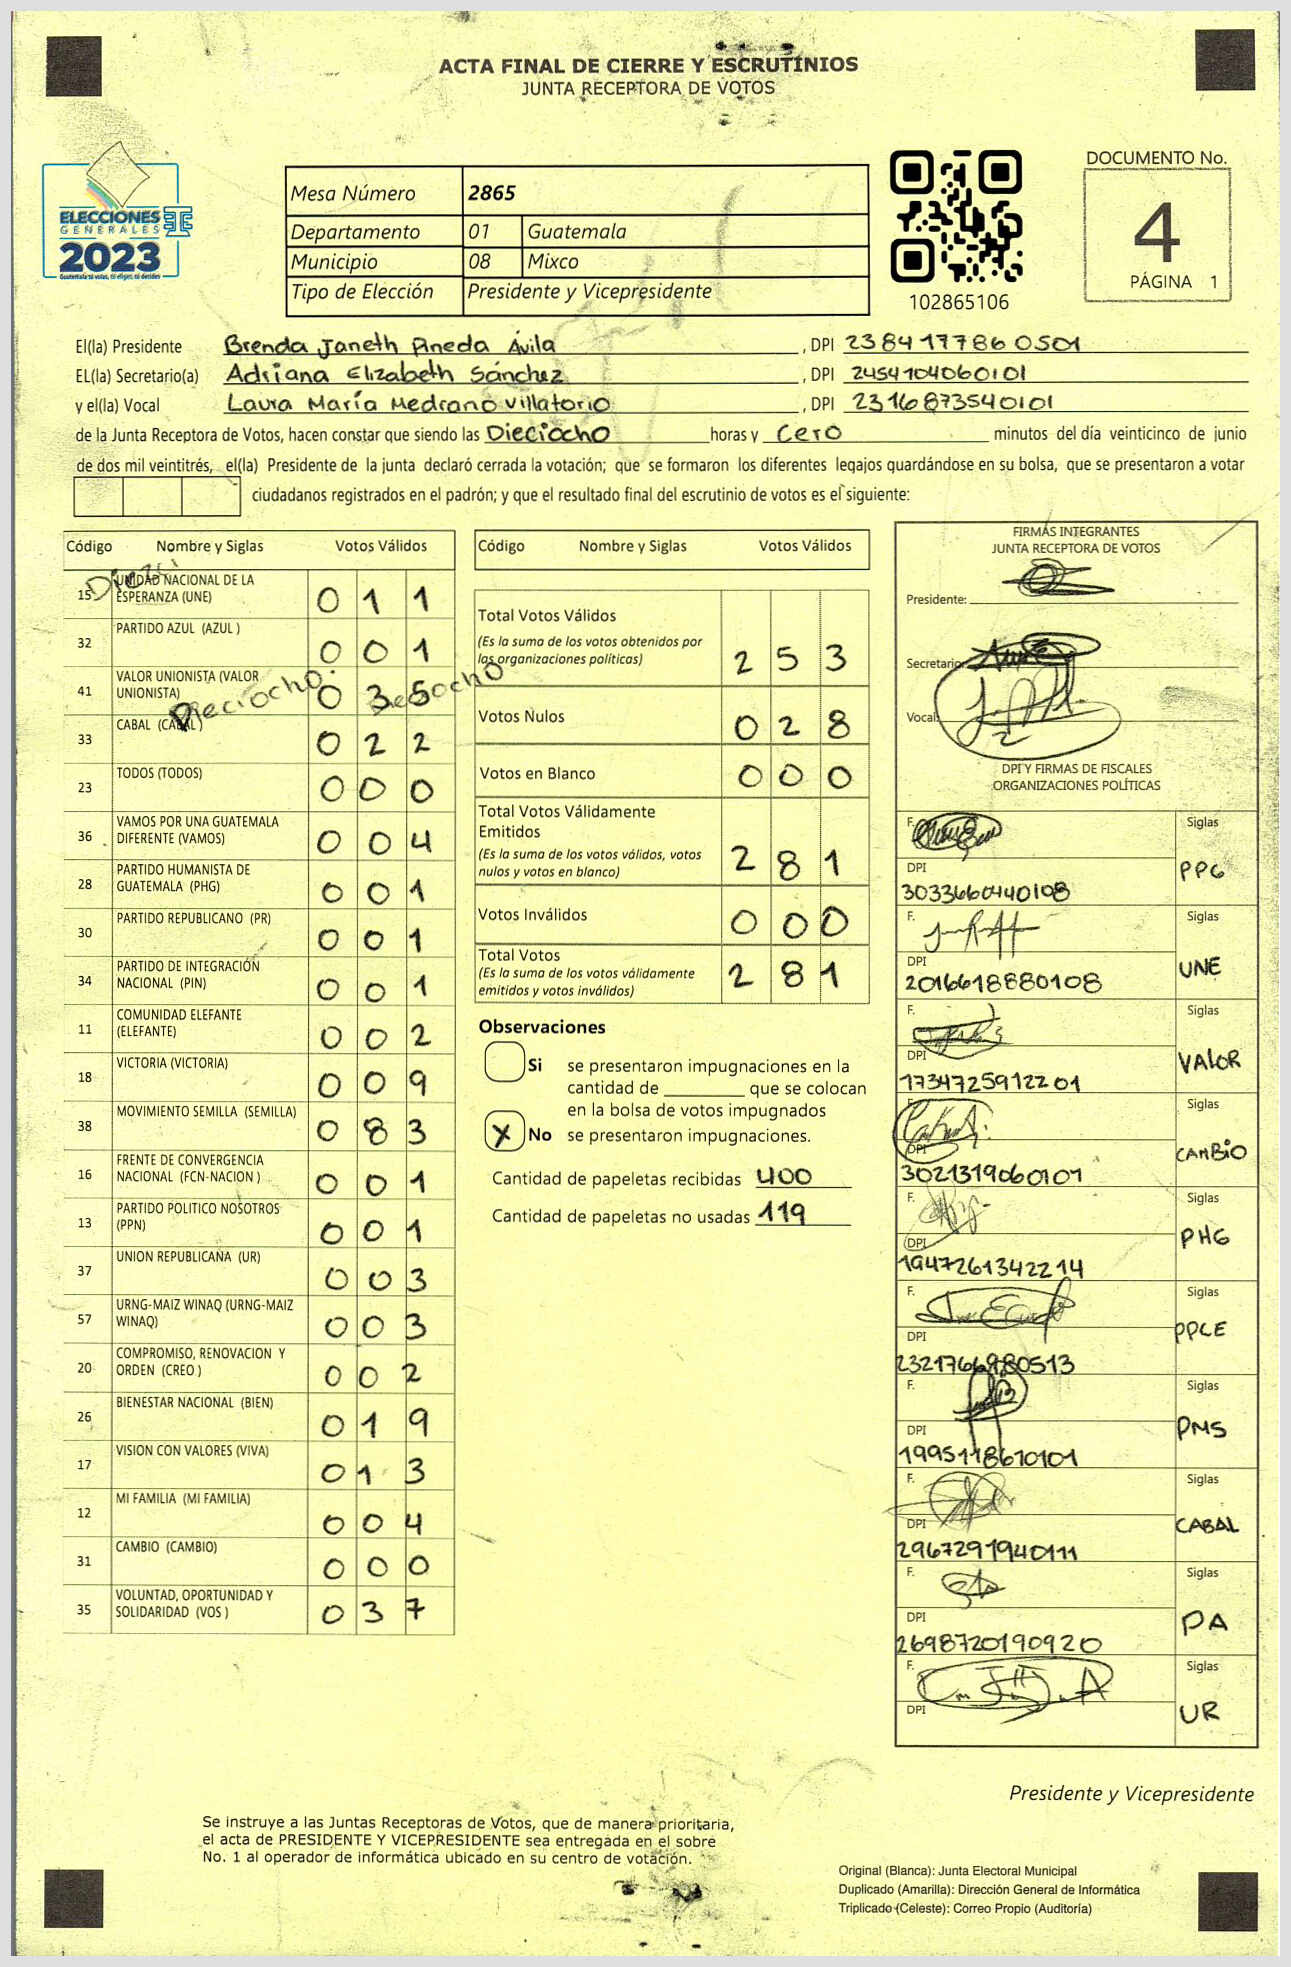 ACTA FINAL DE CIERRE Y ESCRUTINIOS
JUNTA RECEPTORA DE VOTOS
ELECCIONES
GENERALES
2023
Guatemala tú votas, tú eliges, tú decides
Mesa Número 2865
Departamento 01 Guatemala
Municipio 08 Mixco
Tipo de Elección Presidente y Vicepresidente
102865106
DOCUMENTO No.
4
PÁGINA 1
El(la) Presidente Brenda Janeth Pineda Ávila , DPI 2384177860501
EL(la) Secretario(a) Adriana Elizabeth Sánchez , DPI 2454104060101
y el(la) Vocal Laura María Medrano Villatorio , DPI 2316873540101
de la Junta Receptora de Votos, hacen constar que siendo las Dieciocho horas y Cero minutos del día veinticinco de junio
de dos mil veintitrés, el(la) Presidente de la junta declaró cerrada la votación; que se formaron los diferentes legajos guardándose en su bolsa, que se presentaron a votar
ciudadanos registrados en el padrón; y que el resultado final del escrutinio de votos es el siguiente:
Código Nombre y Siglas Votos Válidos
15 UNIDAD NACIONAL DE LA ESPERANZA (UNE) 0 1 1
32 PARTIDO AZUL (AZUL ) 0 0 1
41 VALOR UNIONISTA (VALOR UNIONISTA) 0 3 5
Dieciocho
33 CABAL (CABAL ) 0 2 2
23 TODOS (TODOS) 0 0 0
36 VAMOS POR UNA GUATEMALA DIFERENTE (VAMOS) 0 0 4
28 PARTIDO HUMANISTA DE GUATEMALA (PHG) 0 0 1
30 PARTIDO REPUBLICANO (PR) 0 0 1
34 PARTIDO DE INTEGRACIÓN NACIONAL (PIN) 0 0 1
11 COMUNIDAD ELEFANTE (ELEFANTE) 0 0 2
18 VICTORIA (VICTORIA) 0 0 9
38 MOVIMIENTO SEMILLA (SEMILLA) 0 8 3
16 FRENTE DE CONVERGENCIA NACIONAL (FCN-NACION ) 0 0 1
13 PARTIDO POLITICO NOSOTROS (PPN) 0 0 1
37 UNION REPUBLICANA (UR) 0 0 3
57 URNG-MAIZ WINAQ (URNG-MAIZ WINAQ) 0 0 3
20 COMPROMISO, RENOVACION Y ORDEN (CREO ) 0 0 2
26 BIENESTAR NACIONAL (BIEN) 0 1 9
17 VISION CON VALORES (VIVA) 0 1 3
12 MI FAMILIA (MI FAMILIA) 0 0 4
31 CAMBIO (CAMBIO) 0 0 0
35 VOLUNTAD, OPORTUNIDAD Y SOLIDARIDAD (VOS ) 0 3 7
Código Nombre y Siglas Votos Válidos
Total Votos Válidos
(Es la suma de los votos obtenidos por
las organizaciones políticas) 2 5 3
Votos Nulos 0 2 8
Votos en Blanco 0 0 0
Total Votos Válidamente
Emitidos
(Es la suma de los votos válidos, votos
nulos y votos en blanco) 2 8 1
Votos Inválidos 0 0 0
Total Votos
(Es la suma de los votos válidamente
emitidos y votos inválidos) 2 8 1
Observaciones
Si se presentaron impugnaciones en la
cantidad de ________ que se colocan
en la bolsa de votos impugnados
X No se presentaron impugnaciones.
Cantidad de papeletas recibidas 400
Cantidad de papeletas no usadas 119
FIRMAS INTEGRANTES
JUNTA RECEPTORA DE VOTOS
Presidente:
Secretario:
Vocal:
DPI Y FIRMAS DE FISCALES
ORGANIZACIONES POLÍTICAS
F. Siglas
DPI PPG
3033660440108
F. Siglas
DPI UNE
2016618880108
F. Siglas
DPI VALOR
1734725912201
F. Siglas
DPI CAMBIO
3021319060101
F. Siglas
DPI PHG
1947261342214
F. Siglas
DPI PPCE
2321766980513
F. Siglas
DPI PMS
1995118610101
F. Siglas
DPI CABAL
2967291940111
F. Siglas
DPI PA
2698720190920
F. Siglas
DPI UR
Presidente y Vicepresidente
Se instruye a las Juntas Receptoras de Votos, que de manera prioritaria,
el acta de PRESIDENTE Y VICEPRESIDENTE sea entregada en el sobre
No. 1 al operador de informática ubicado en su centro de votación.
Original (Blanca): Junta Electoral Municipal
Duplicado (Amarilla): Dirección General de Informática
Triplicado (Celeste): Correo Propio (Auditoría)